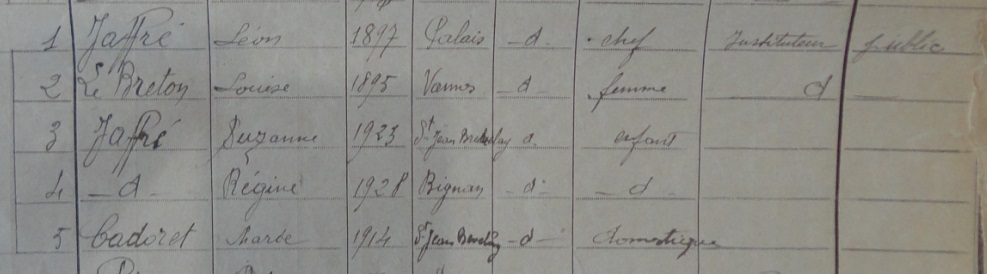 1 Jaffré Léon 1897 Palais d chef Instituteur public
2 Le Breton Louise 1895 Vannes d femme d
3 Jaffré Suzanne 1923 St Jean Brévelay d. enfant
4 d Régine 1928 Bignan d d
5 Cadoret Marie 1914 St Jean Brévelay d domestique